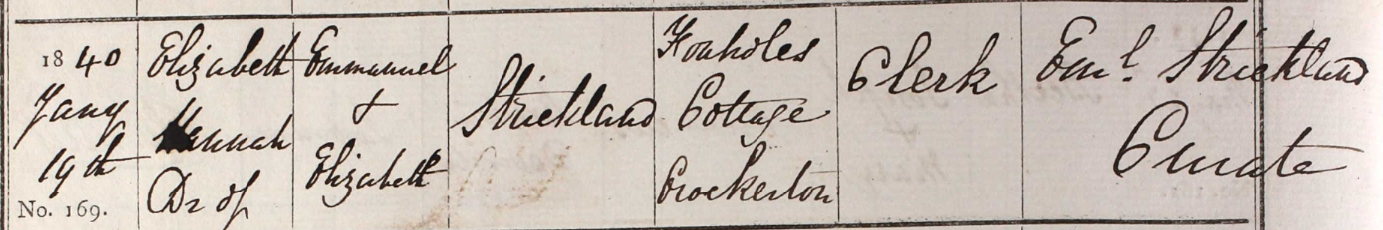 1840
Jany
19th
No. 169.
Elizabeth
Hannah
Dr of
Emmanuel
&
Elizabeth
Strickland
Foxholes
Cottage
Crockerton
Clerk
Eml. Strickland
Curate